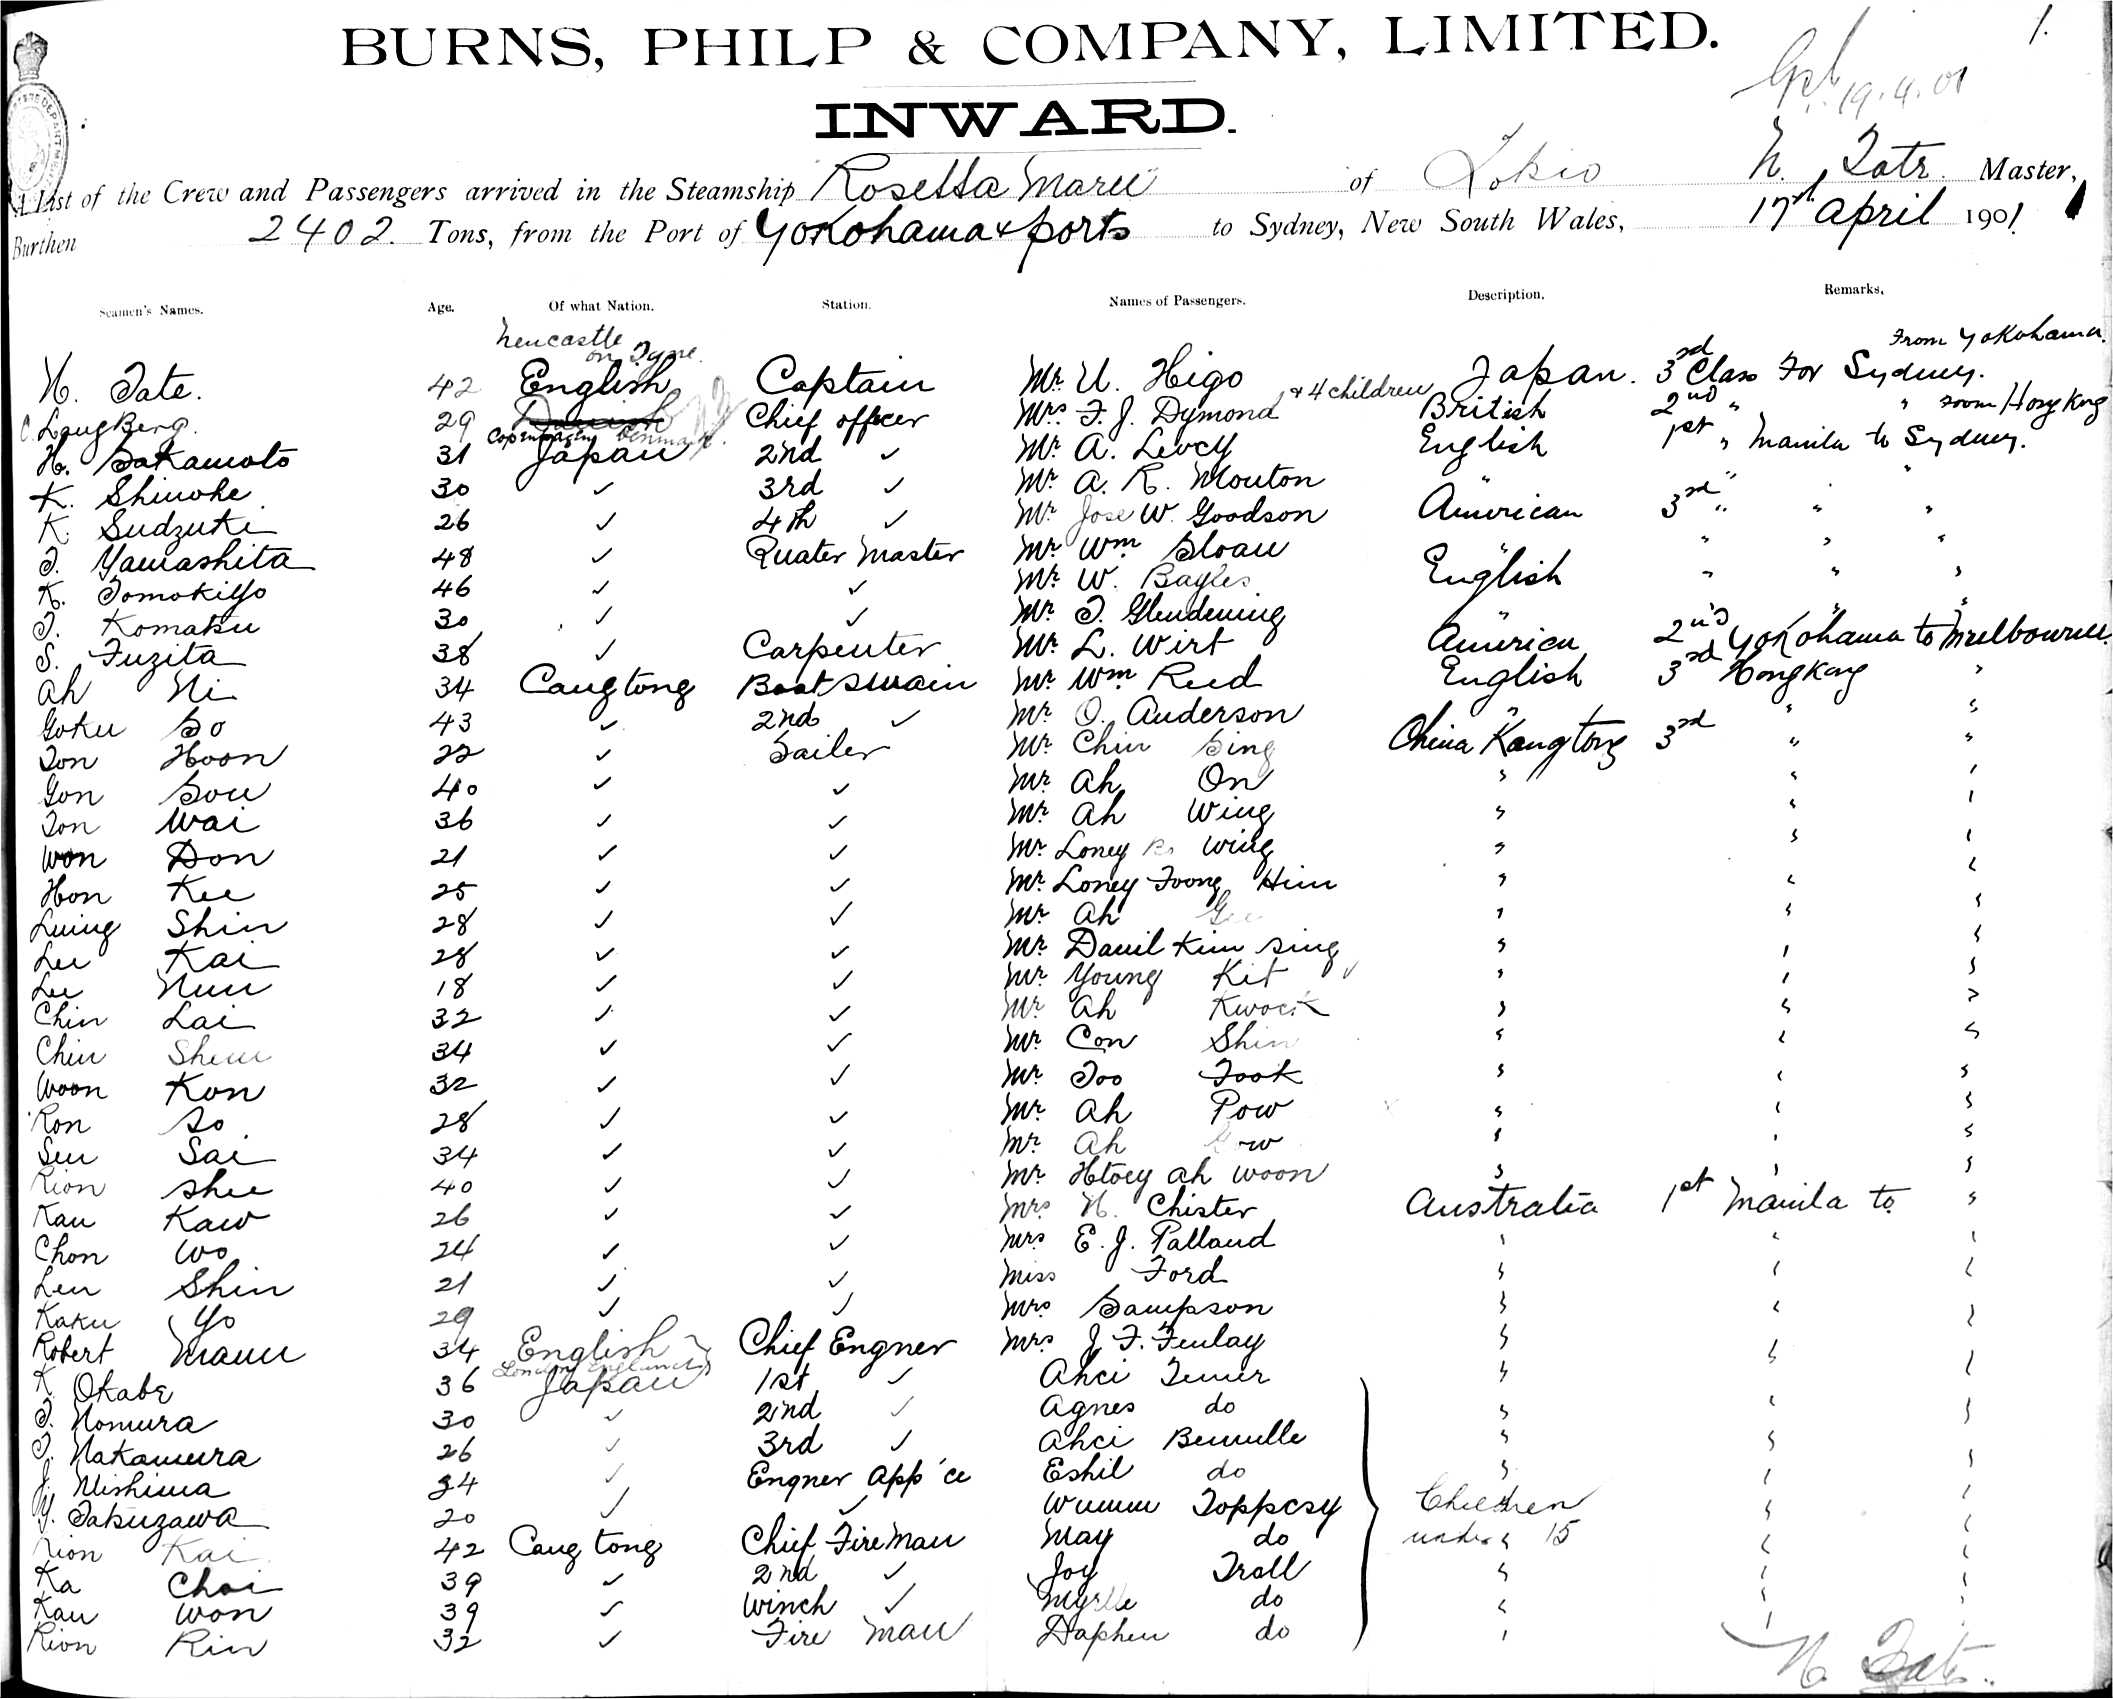 BURNS, PHILP & COMPANY, LIMITED. 1.
19.4.01
INWARD.
A List of the Crew and Passengers arrived in the Steamship Rosetta Maru of Tokio N. Tate Master,
Burthen 2402. Tons, from the Port of Yokohama & ports to Sydney, New South Wales, 17th April 1901
Seamen's Names. Age. Of what Nation. Station. Names of Passengers. Description. Remarks.
Newcastle on Tyne. From Yokohama.
N. Tate. 42 English Captain Mr. U. Higo Japan. 3rd Class For Sydney.
C. LangBerg. 29 Danish Chief officer Mrs F. J. Dymond & 4 children British 2nd " " from Hong Kong
Copenhagen Denmark.
H. Sakamoto 31 Japan 2nd ✓ Mr. A. Levey English 1st " Manila to Sydney.
K. Shinohe 30 ✓ 3rd ✓ Mr. A. R. Mouton " " "
K. Sudzuki 26 ✓ 4th ✓ Mr. Jose W. Goodson American 3rd " " "
T. Yamashita 48 ✓ Quater Master Mr. Wm Sloan " " " "
K. Tomokiyo 46 ✓ ✓ Mr. W. Bayles English " " "
T. Komaku 30 ✓ ✓ Mr. T. Glendening " " "
S. Fuzita 38 ✓ Carpenter Mr. L. Wirt American 2nd Yokohama to Melbourne
Ah Ni 34 Cangtong Boatswain Mr. Wm Reed English 3rd Hongkong "
Goku So 43 ✓ 2nd ✓ Mr. O. Anderson " " "
Ton Hoon 22 ✓ Sailer Mr. Chin Sing China Kangtong 3rd " "
Gon Sou 40 ✓ ✓ Mr. Ah On " " "
Ton Wai 36 ✓ ✓ Mr. Ah Wing " " "
Won Don 21 ✓ ✓ Mr. Loney Wing " " "
Hon Kee 25 ✓ ✓ Mr. Loney Foong Him " " "
Luing Shin 28 ✓ ✓ Mr. Ah Gee " " "
Lee Kai 28 ✓ ✓ Mr. Danil Kim Sing " " "
Lee Nun 18 ✓ ✓ Mr. Young Kit " " "
Chin Lai 32 ✓ ✓ Mr. Ah Kwock " " "
Chin Shem 34 ✓ ✓ Mr. Con Shin " " "
Woon Kon 32 ✓ ✓ Mr. Too Fook " " "
Ron So 28 ✓ ✓ Mr. Ah Pow " " "
Sen Sai 34 ✓ ✓ Mr. Ah " " "
Rion Shee 40 ✓ ✓ Mr. Htoey Ah Woon " " "
Kau Kaw 26 ✓ ✓ Mrs N. Chister Australia 1st Manila to "
Chon Wo 24 ✓ ✓ Mrs E. J. Palland " " "
Len Shin 21 ✓ ✓ Miss Ford " " "
Kaku Yo 29 ✓ ✓ Mrs Sampson " " "
Robert Mann 34 English Chief Engner Mrs J. F. Finlay " " "
London England
K. Okabe 36 Japan 1st ✓ Ahci " " "
T. Nomura 30 ✓ 2nd ✓ Agnes do " " "
T. Nakamura 26 ✓ 3rd ✓ Ahci " " "
J. Nishima 24 ✓ Engner App'ce Eshil do " " "
Y. Takuzawa 20 ✓ ✓ Toppesy Children " "
Rion Kai 42 Cangtong Chief Fireman May do under 15 " "
Ka Choi 39 ✓ 2nd ✓ Joy Trall " " "
Kau Won 39 ✓ Winch ✓ Myrtle do " " "
Rion Rin 32 ✓ Fire man Daphen do " "
N. Tate.